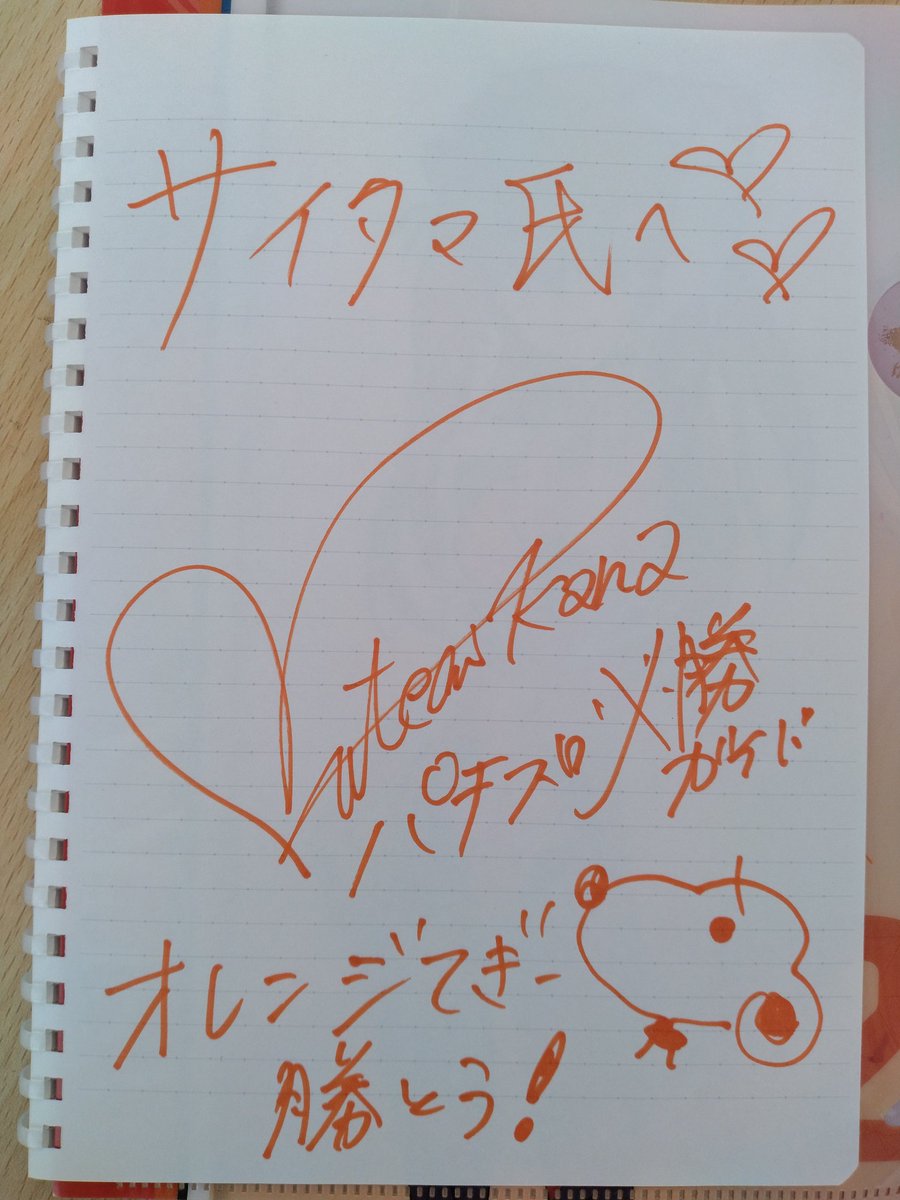 サイタマ氏へ
Kana
パチスロ必勝
ガイド
オレンジでぎー
勝とう!